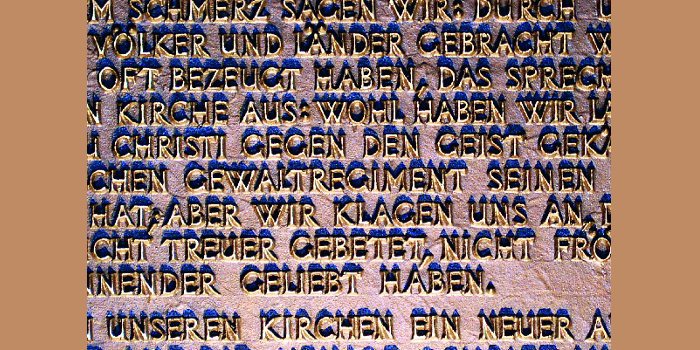 M SCHMERZ SAGEN WIR: DURCH U
VÖLKER UND LÄNDER GEBRACHT W
OFT BEZEUGT HABEN, DAS SPRECH
N KIRCHE AUS: WOHL HABEN WIR LA
CHRISTI GEGEN DEN GEIST GEKÄ
CHEN GEWALTREGIMENT SEINEN
HAT; ABER WIR KLAGEN UNS AN,
CHT TREUER GEBETET, NICHT FRÖ
NNENDER GELIEBT HABEN.
UNSEREN KIRCHEN EIN NEUER A